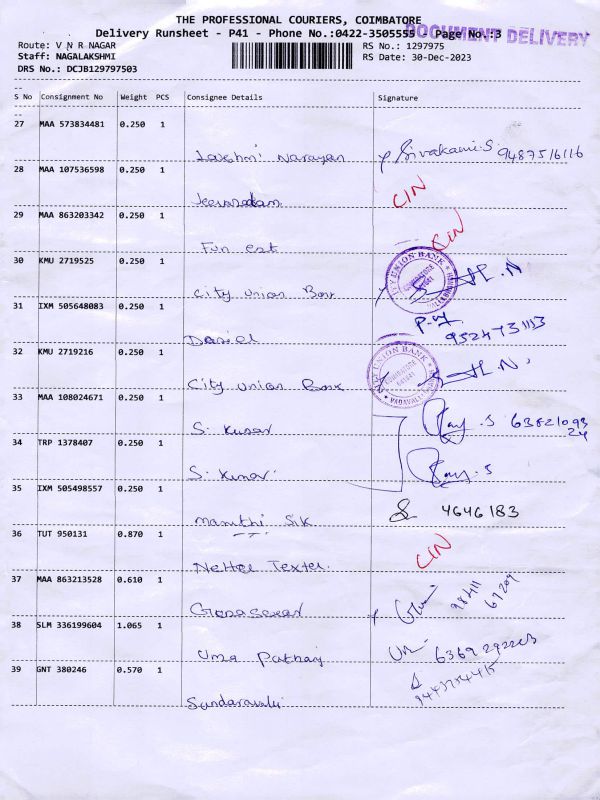 THE PROFESSIONAL COURIERS, COIMBATORE
Delivery Runsheet - P41 - Phone No.:0422-3505555 Page No.:3
DOCUMENT DELIVERY
Route: V N R NAGAR RS No.: 1297975
Staff: NAGALAKSHMI RS Date: 30-Dec-2023
DRS No.: DCJB129797503
S No Consignment No Weight PCS Consignee Details Signature
27 MAA 573834481 0.250 1
Lakshmi Narayan Sivakami.S 9487516116
28 MAA 107536598 0.250 1
CIN
29 MAA 863203342 0.250 1
Fun est CIN
30 KMU 2719525 0.250 1
City Union Bank CITY UNION BANK COIMBATORE H.N
31 IXM 505648083 0.250 1
Daniel 9524731113
32 KMU 2719216 0.250 1
City Union Bank CITY UNION BANK COIMBATORE VADAVALLI H.N.
33 MAA 108024671 0.250 1
S. Kumar .S 63821093
24
34 TRP 1378407 0.250 1
S. Kumar .S
35 IXM 505498557 0.250 1
Maruthi Sik 4646183
36 TUT 950131 0.870 1
CIN
37 MAA 863213528 0.610 1
98411
67209
38 SLM 336199604 1.065 1
Uma
39 GNT 380246 0.570 1
Sundaravalli